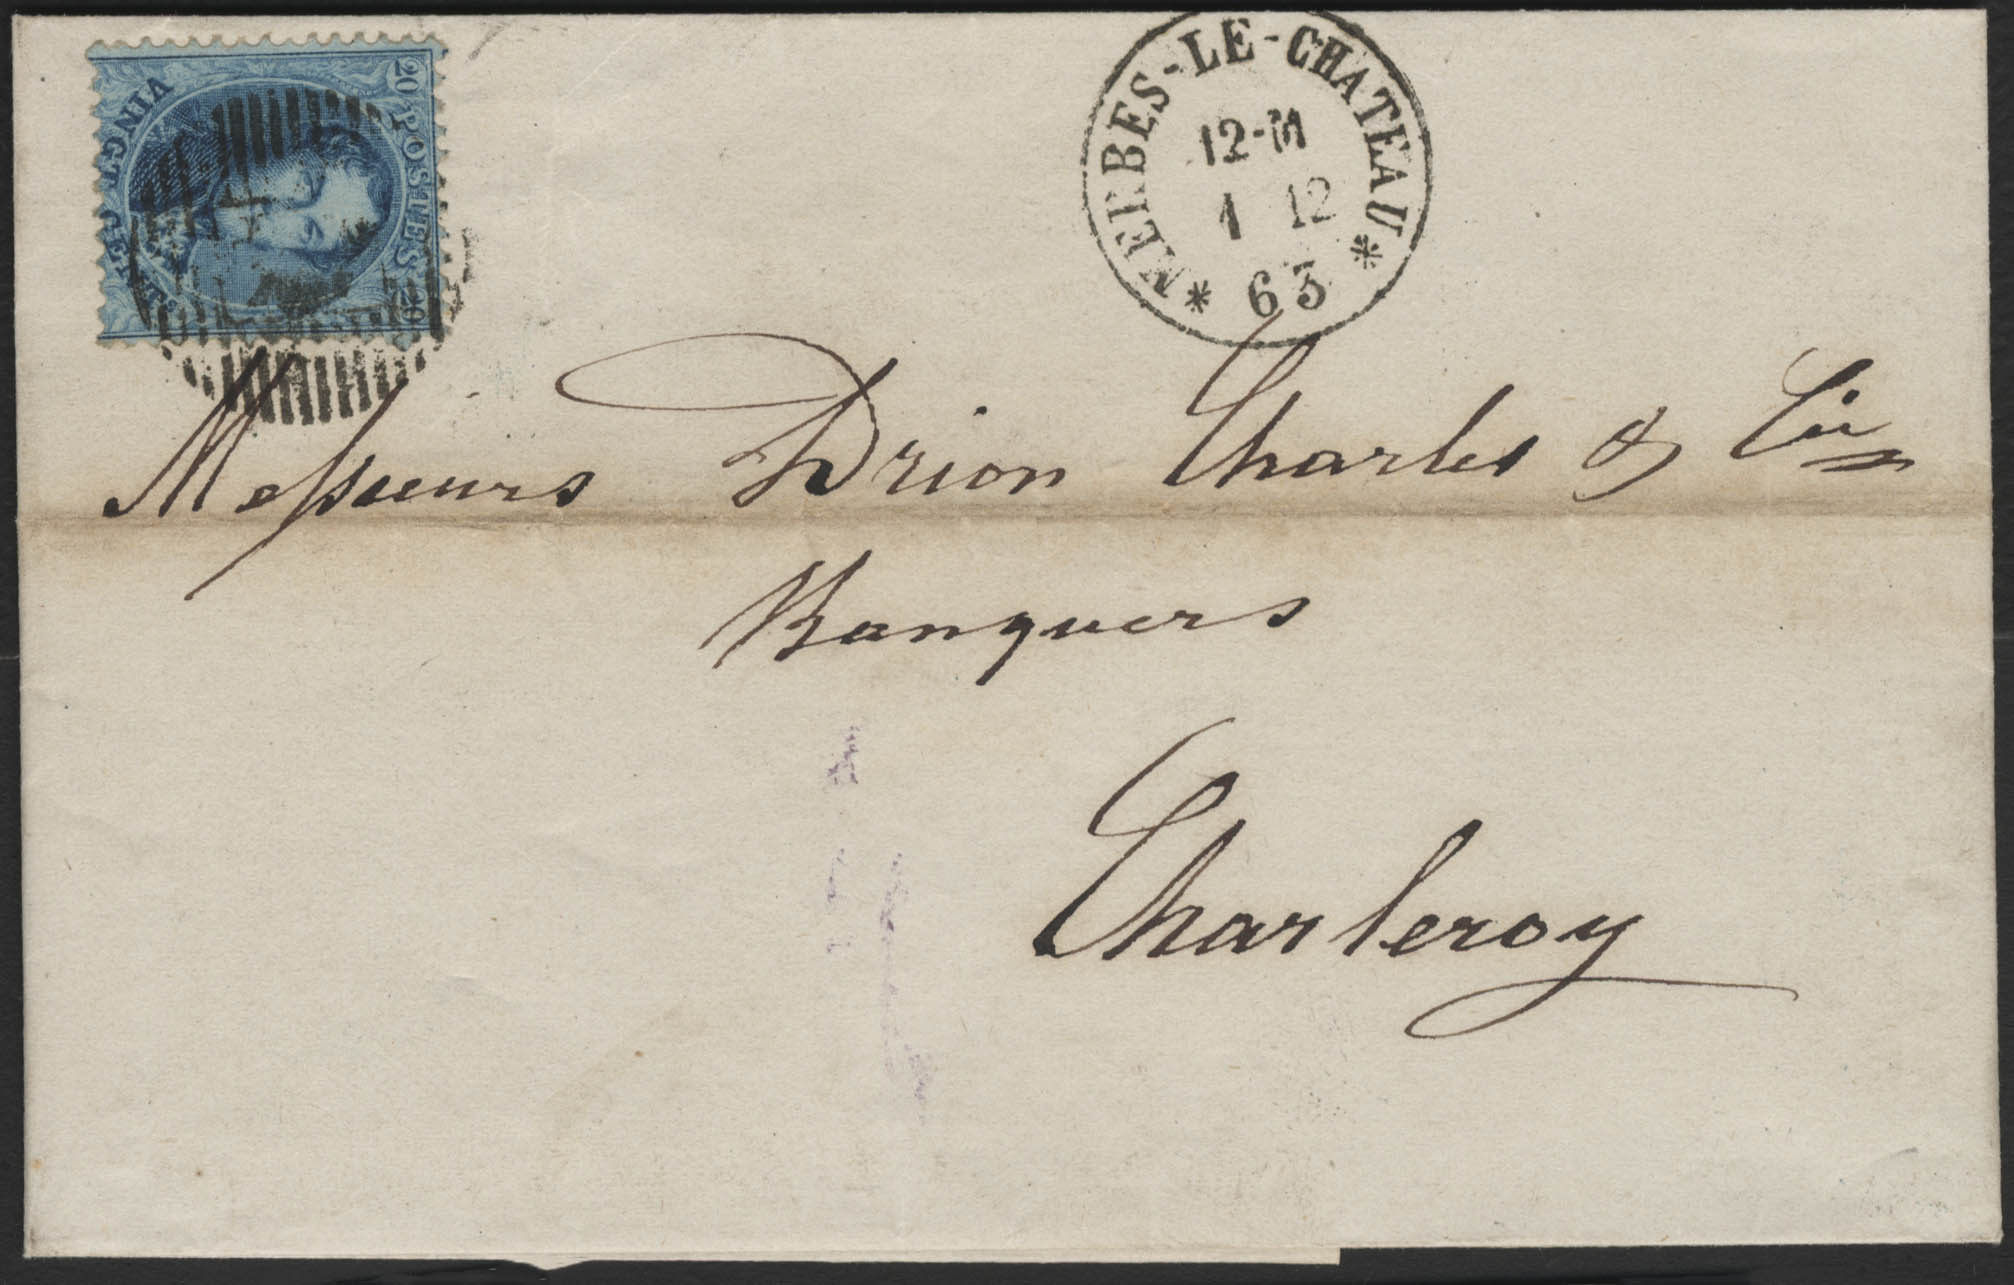 20 POSTES 20
VINGT CENTES
MERBES-LE-CHATEAU
12-M
1 12
63
Messieurs Drion Charles & Cie
Banquiers
Charleroy